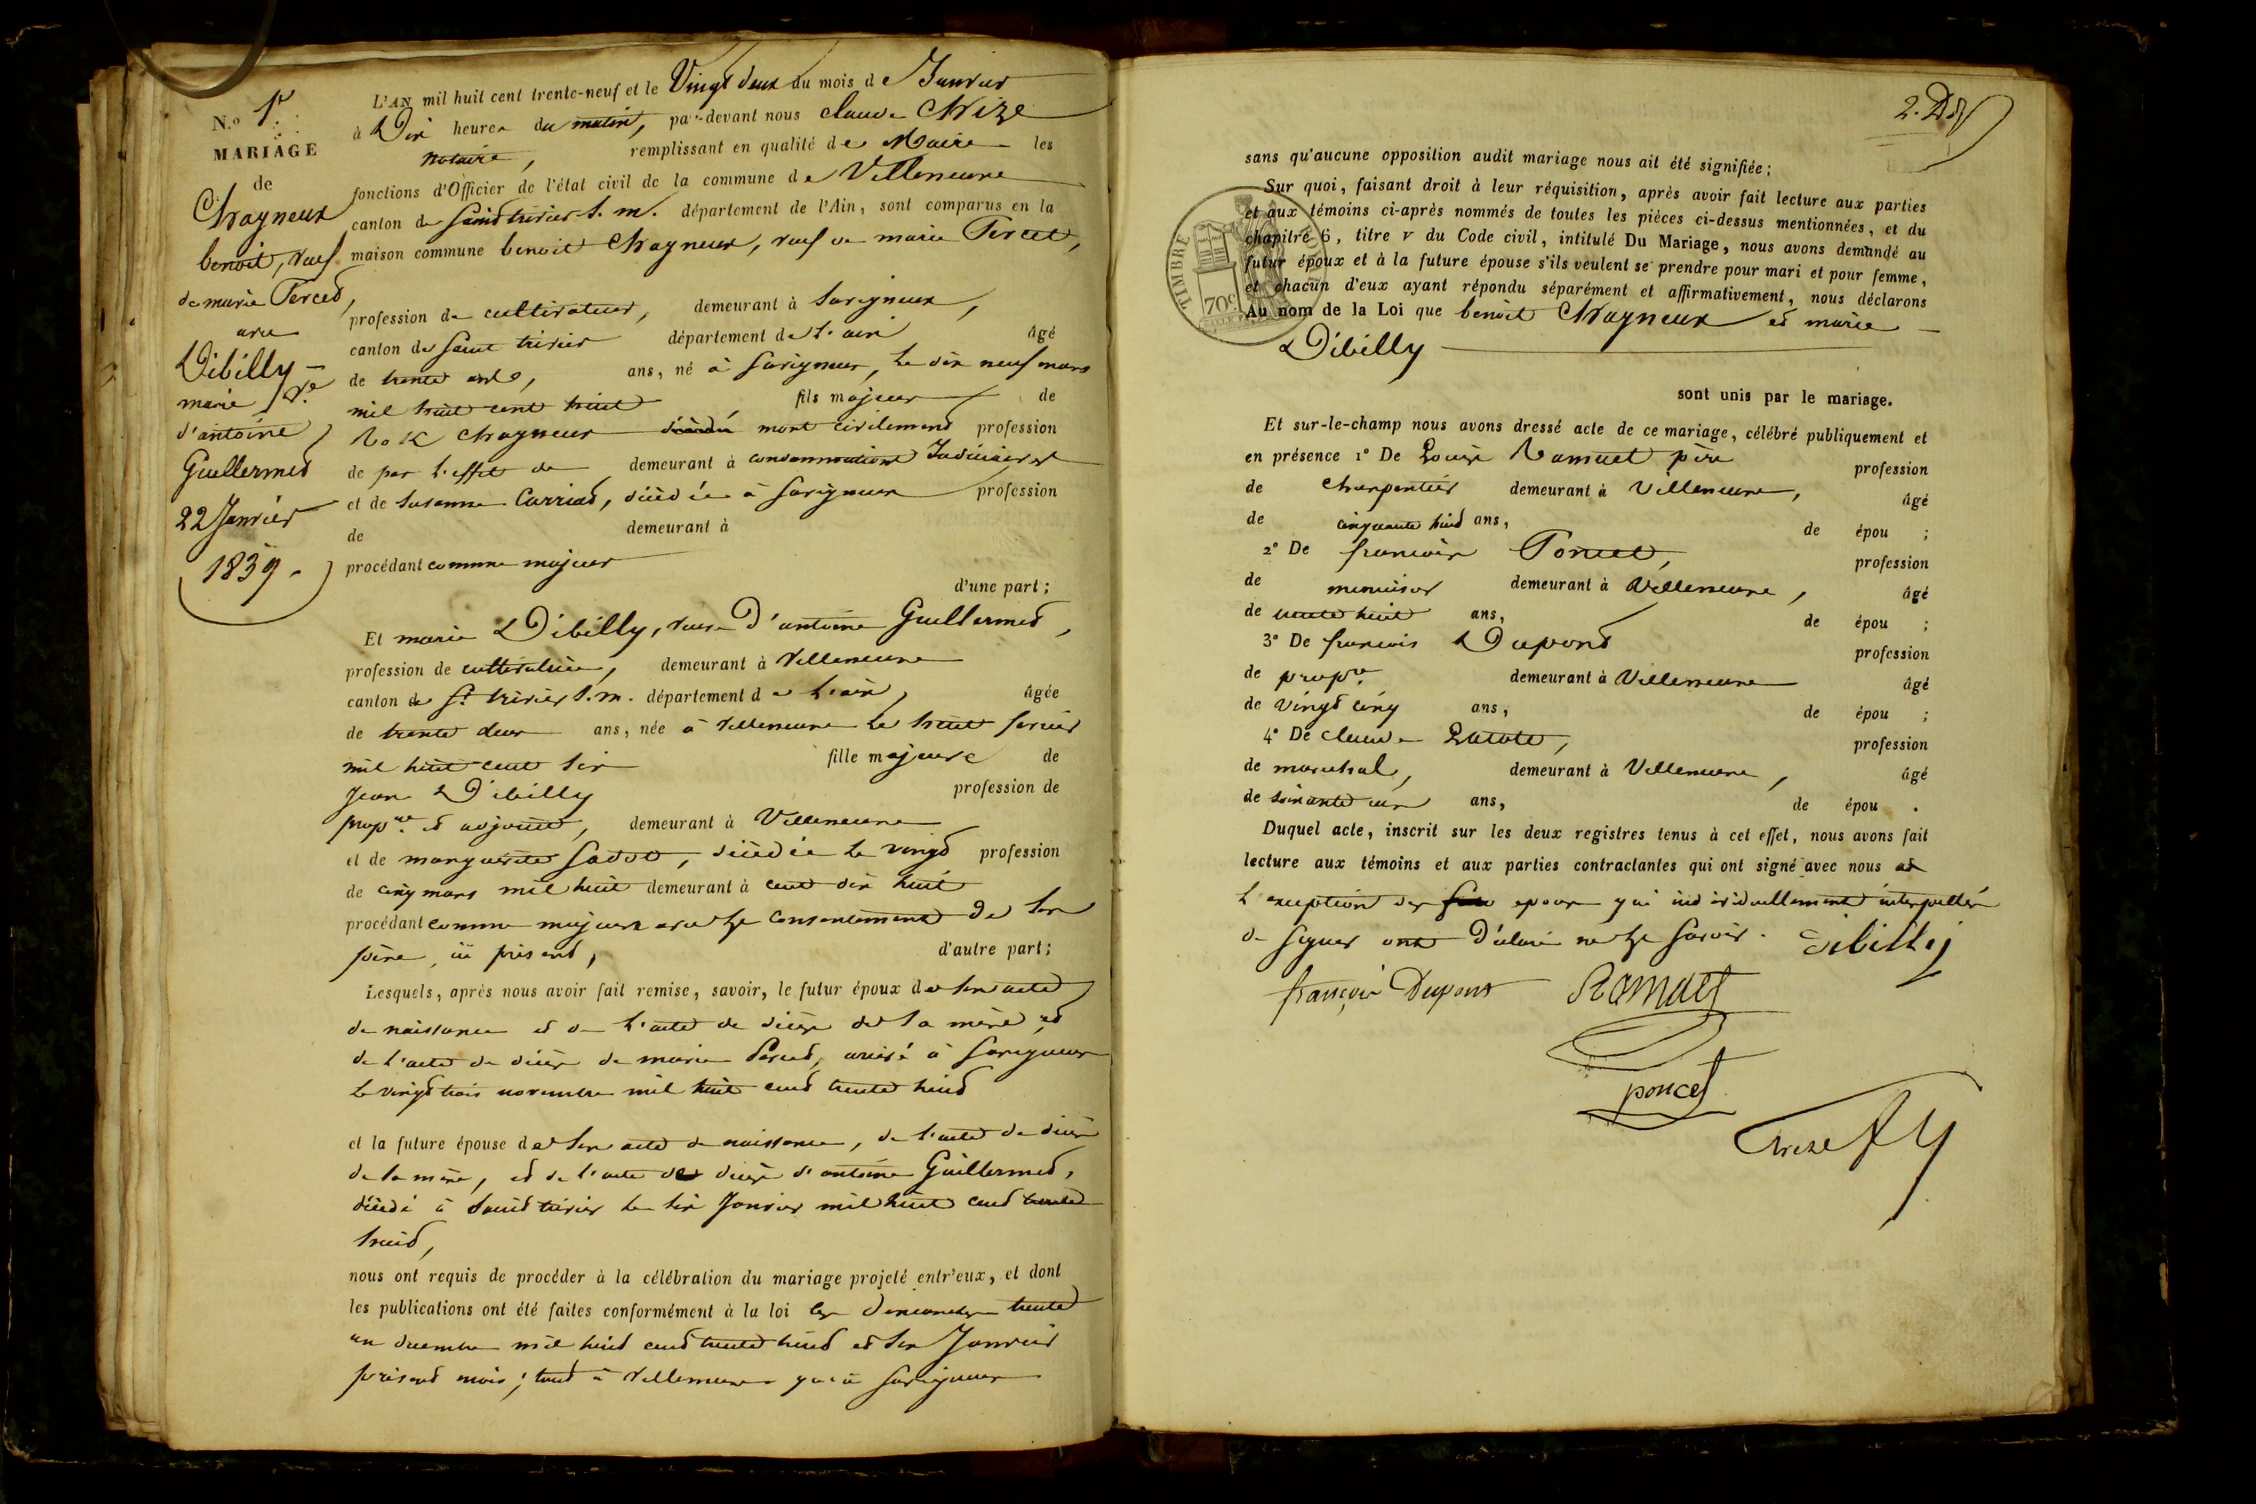 N.o 1er
MARIAGE
de
Chagneux
benoit, veuf
de marie Percet,
avec
Dibilly
marie Ve
d'antoine
Guillermet
22 Janvier
1839.
L'AN mil huit cent trente-neuf et le Vingt deux du mois de Janvier
à Dix heures du matin, par-devant nous Claude Chize
notaire, remplissant en qualité de Maire les
fonctions d'Officier de l'état civil de la commune de Villeneuve
canton de Saint trivier S. m. département de l'Ain, sont comparus en la
maison commune benoit Chagneux, veuf de marie Percet,
profession de cultivateur, demeurant à Savigneux,
canton de Saint trivier département de l'ain âgé
de trente ans, ans, né à Savigneux, le dix neuf mars
mil huit cent huit fils majeur de
Rock Chagneux décédé mort civilement profession
de par l'effet de demeurant à condamnations Judiciaires
et de Susanne Carriat, décédée à Savigneux profession
de demeurant à
procédant comme majeur
d'une part;
Et marie Dibilly, veuve d'antoine Guillermet,
profession de cultivatrice, demeurant à Villeneuve
canton de St trivier S. m. département de l'ain, âgée
de trente deux ans, née à Villeneuve le huit février
mil huit cent six fille majeure de
Jean Dibilly profession de
propre et adjoint, demeurant à Villeneuve
et de marguerite Sadot, décédée le vingt profession
de cinq mars mil huit demeurant à cent dix huit
procédant comme majeure avec le consentement de son
père, ici présent, d'autre part;
Lesquels, après nous avoir fait remise, savoir, le futur époux de son acte
de naissance et de l'acte de décès de sa mère et
de l'acte de décès de marie Percet, arrivé à Savigneux
le vingt trois novembre mil huit cent trente huit
et la future épouse de son acte de naissance, de l'acte de décès
de sa mère, et de l'acte de décès d'antoine Guillermet,
décédé à Saint trivier le six Janvier mil huit cent trente
huit,
nous ont requis de procéder à la célébration du mariage projeté entr'eux, et dont
les publications ont été faites conformément à la loi les dimanches trente
un décembre mil huit cent trente huit et six Janvier
présent mois; tant à Villeneuve qu'à Savigneux
sans qu'aucune opposition audit mariage nous ait été signifiée;
Sur quoi, faisant droit à leur réquisition, après avoir fait lecture aux parties
et aux témoins ci-après nommés de toutes les pièces ci-dessus mentionnées, et du
chapitre 6, titre v du Code civil, intitulé Du Mariage, nous avons demandé au
futur époux et à la future épouse s'ils veulent se prendre pour mari et pour femme,
et chacun d'eux ayant répondu séparément et affirmativement, nous déclarons
Au nom de la Loi que benoit Chagneux et marie
Dibilly
sont unis par le mariage.
TIMBRE ROYAL
70c
Et sur-le-champ nous avons dressé acte de ce mariage, célébré publiquement et
en présence 1° De Louis Ramuet père profession
de Charpentier demeurant à Villeneuve, âgé
de cinquante huit ans, de épou ;
2° De françois Poncet, profession
de menuisier demeurant à Villeneuve, âgé
de trente huit ans, de épou ;
3° De françois Dupont profession
de propre demeurant à Villeneuve âgé
de vingt cinq ans, de épou ;
4° De Claude profession
de maréchal, demeurant à Villeneuve, âgé
de soixante un ans, de épou .
Duquel acte, inscrit sur les deux registres tenus à cet effet, nous avons fait
lecture aux témoins et aux parties contractantes qui ont signé avec nous
l'exception des époux qui individuellement interpellés
de signer ont déclaré ne le savoir. Dibilly
françois Dupont Ramuet
poncet
Chize